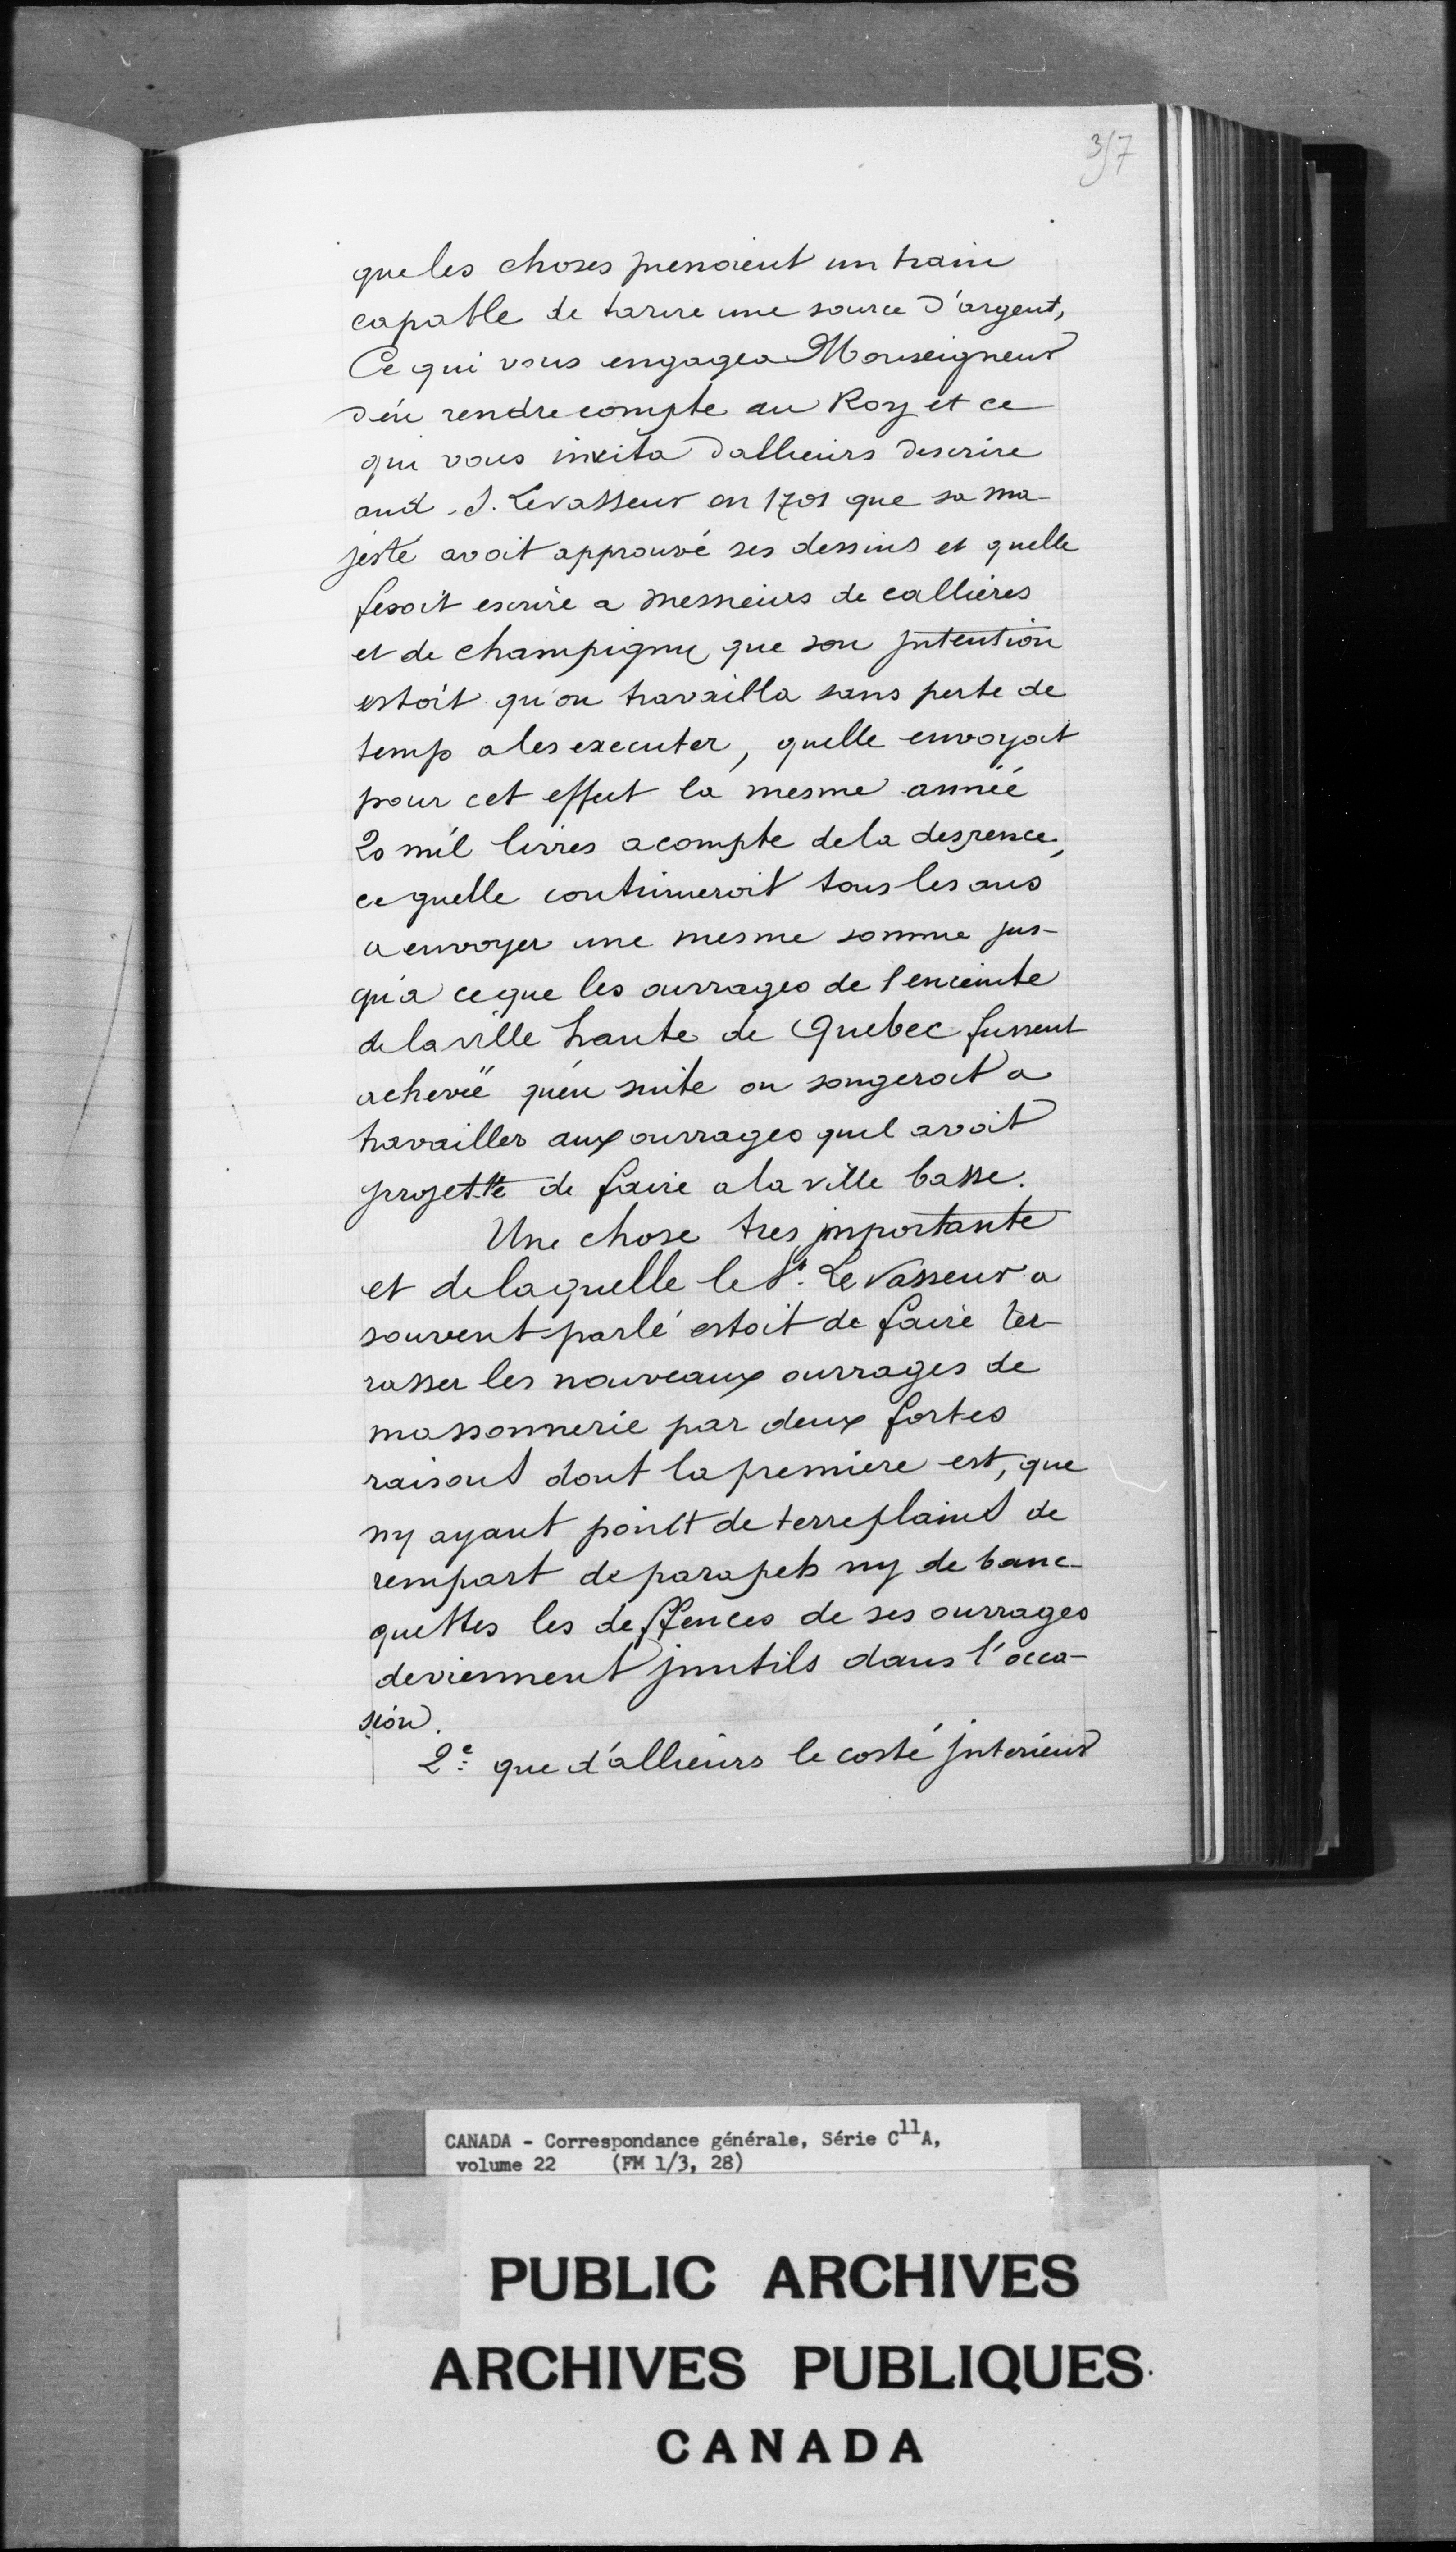 357
que les choses prenoient un train
capable de tarire une source d'argent,
Ce qui vous engagea Monseigneur
d'en rendre compte au Roy et ce
qui vous incita dallieurs descrire
aud. S. Levasseur en 1701 que sa ma-
jesté avoit approuvé ses dessins et quelle
fesoit escrire a messieurs de callières
et de champigny que son jntention
estoit qu'on travailla sans perte de
temp a les executer, quelle envoyoit
pour cet effect la mesme année
20 mil livres acompte de la despence,
ce quelle continueroit tous les ans
a envoyer une mesme somme jus-
qu'a ce que les ouvrages de l'enceinte
de la ville haute de Quebec fussent
achevéé qu'en suite on songeroit a
travailler aux ouvrages quil avoit
projetté de faire a la ville basse.
Une chose tres jmportante
et de laquelle le Sr. Le Vasseur a
souvent parlé estoit de faire ter-
rasser les nouveaux ouvrages de
massonnerie par deux fortes
raisons dont la premiere est, que
ny ayant point de terreplains de
rempart de parapets ny de banc-
quettes les deffences de ses ouvrages
deviennent jnutils dans l'occa-
sion.
2e: que d'allieurs le costé jnterieur
CANADA - Correspondance générale, Série C11A,
volume 22 (FM 1/3, 28)
PUBLIC ARCHIVES
ARCHIVES PUBLIQUES
CANADA